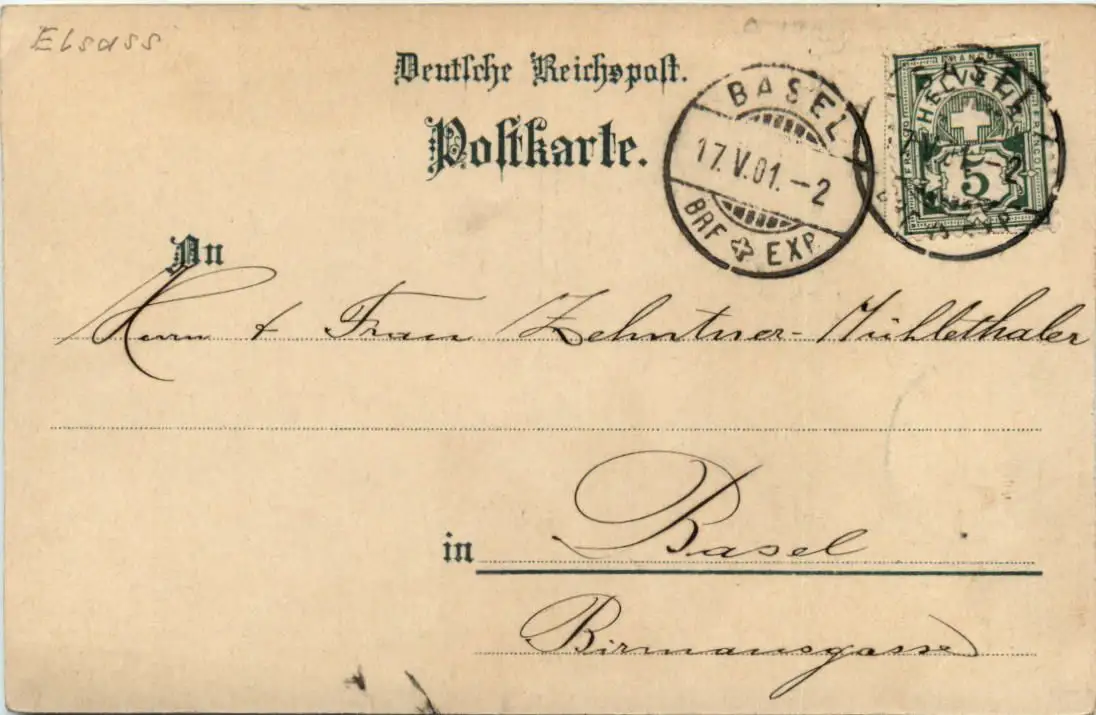 Elsass
Deutsche Reichspost.
Postkarte.
BASEL
17.V.01.-2
BRF EXP.
BASEL
V. -2
EXP.
FRANCO
HELVETIA
5
An
Herrn & Frau Zehntner-Mühlethaler
in Basel
Birmansgasse